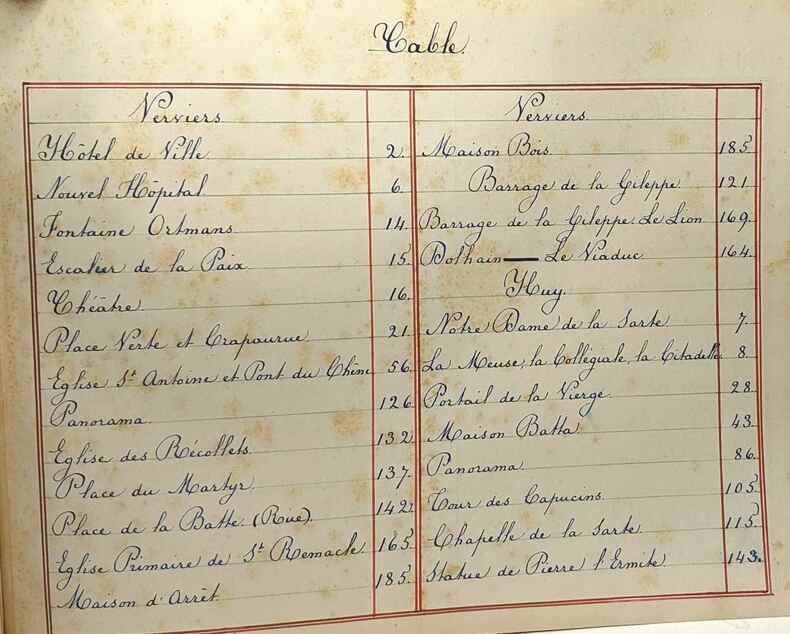 Table.
Verviers
Hôtel de Ville 2.
Nouvel Hôpital 6.
Fontaine Ortmans. 14.
Escalier de la Paix 15.
Théâtre. 16.
Place Verte et Crapaurue 21.
Eglise St Antoine et Pont du Chêne 56.
Panorama. 126
Eglise des Récollets. 132
Place du Martyr. 137.
Place de la Batte. (Rue). 142.
Eglise Primaire de St Remacle. 165.
Maison d'Arrêt. 185.
Verviers.
Maison Bois. 185
Barrage de la Gileppe. 121.
Barrage de la Gileppe. Le Lion 169.
Dolhain — Le Viaduc. 164.
Huy.
Notre Dame de la Sarte 7.
La Meuse, la Collégiale, la Citadelle. 8.
Portail de la Vierge. 28.
Maison Batta. 43.
Panorama. 86.
Tour des Capucins. 105
Chapelle de la Sarte. 115.
Statue de Pierre l'Ermite 143.